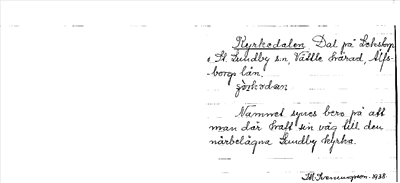 Kyrkedalen Dal på Lekstorp
i St. Lundby s:n, Vättle härad, Älfs-
borgs län.
Nammet synes bero på att
man där haft sin väg till den
närbelägna Lundby kyrka.
1938.